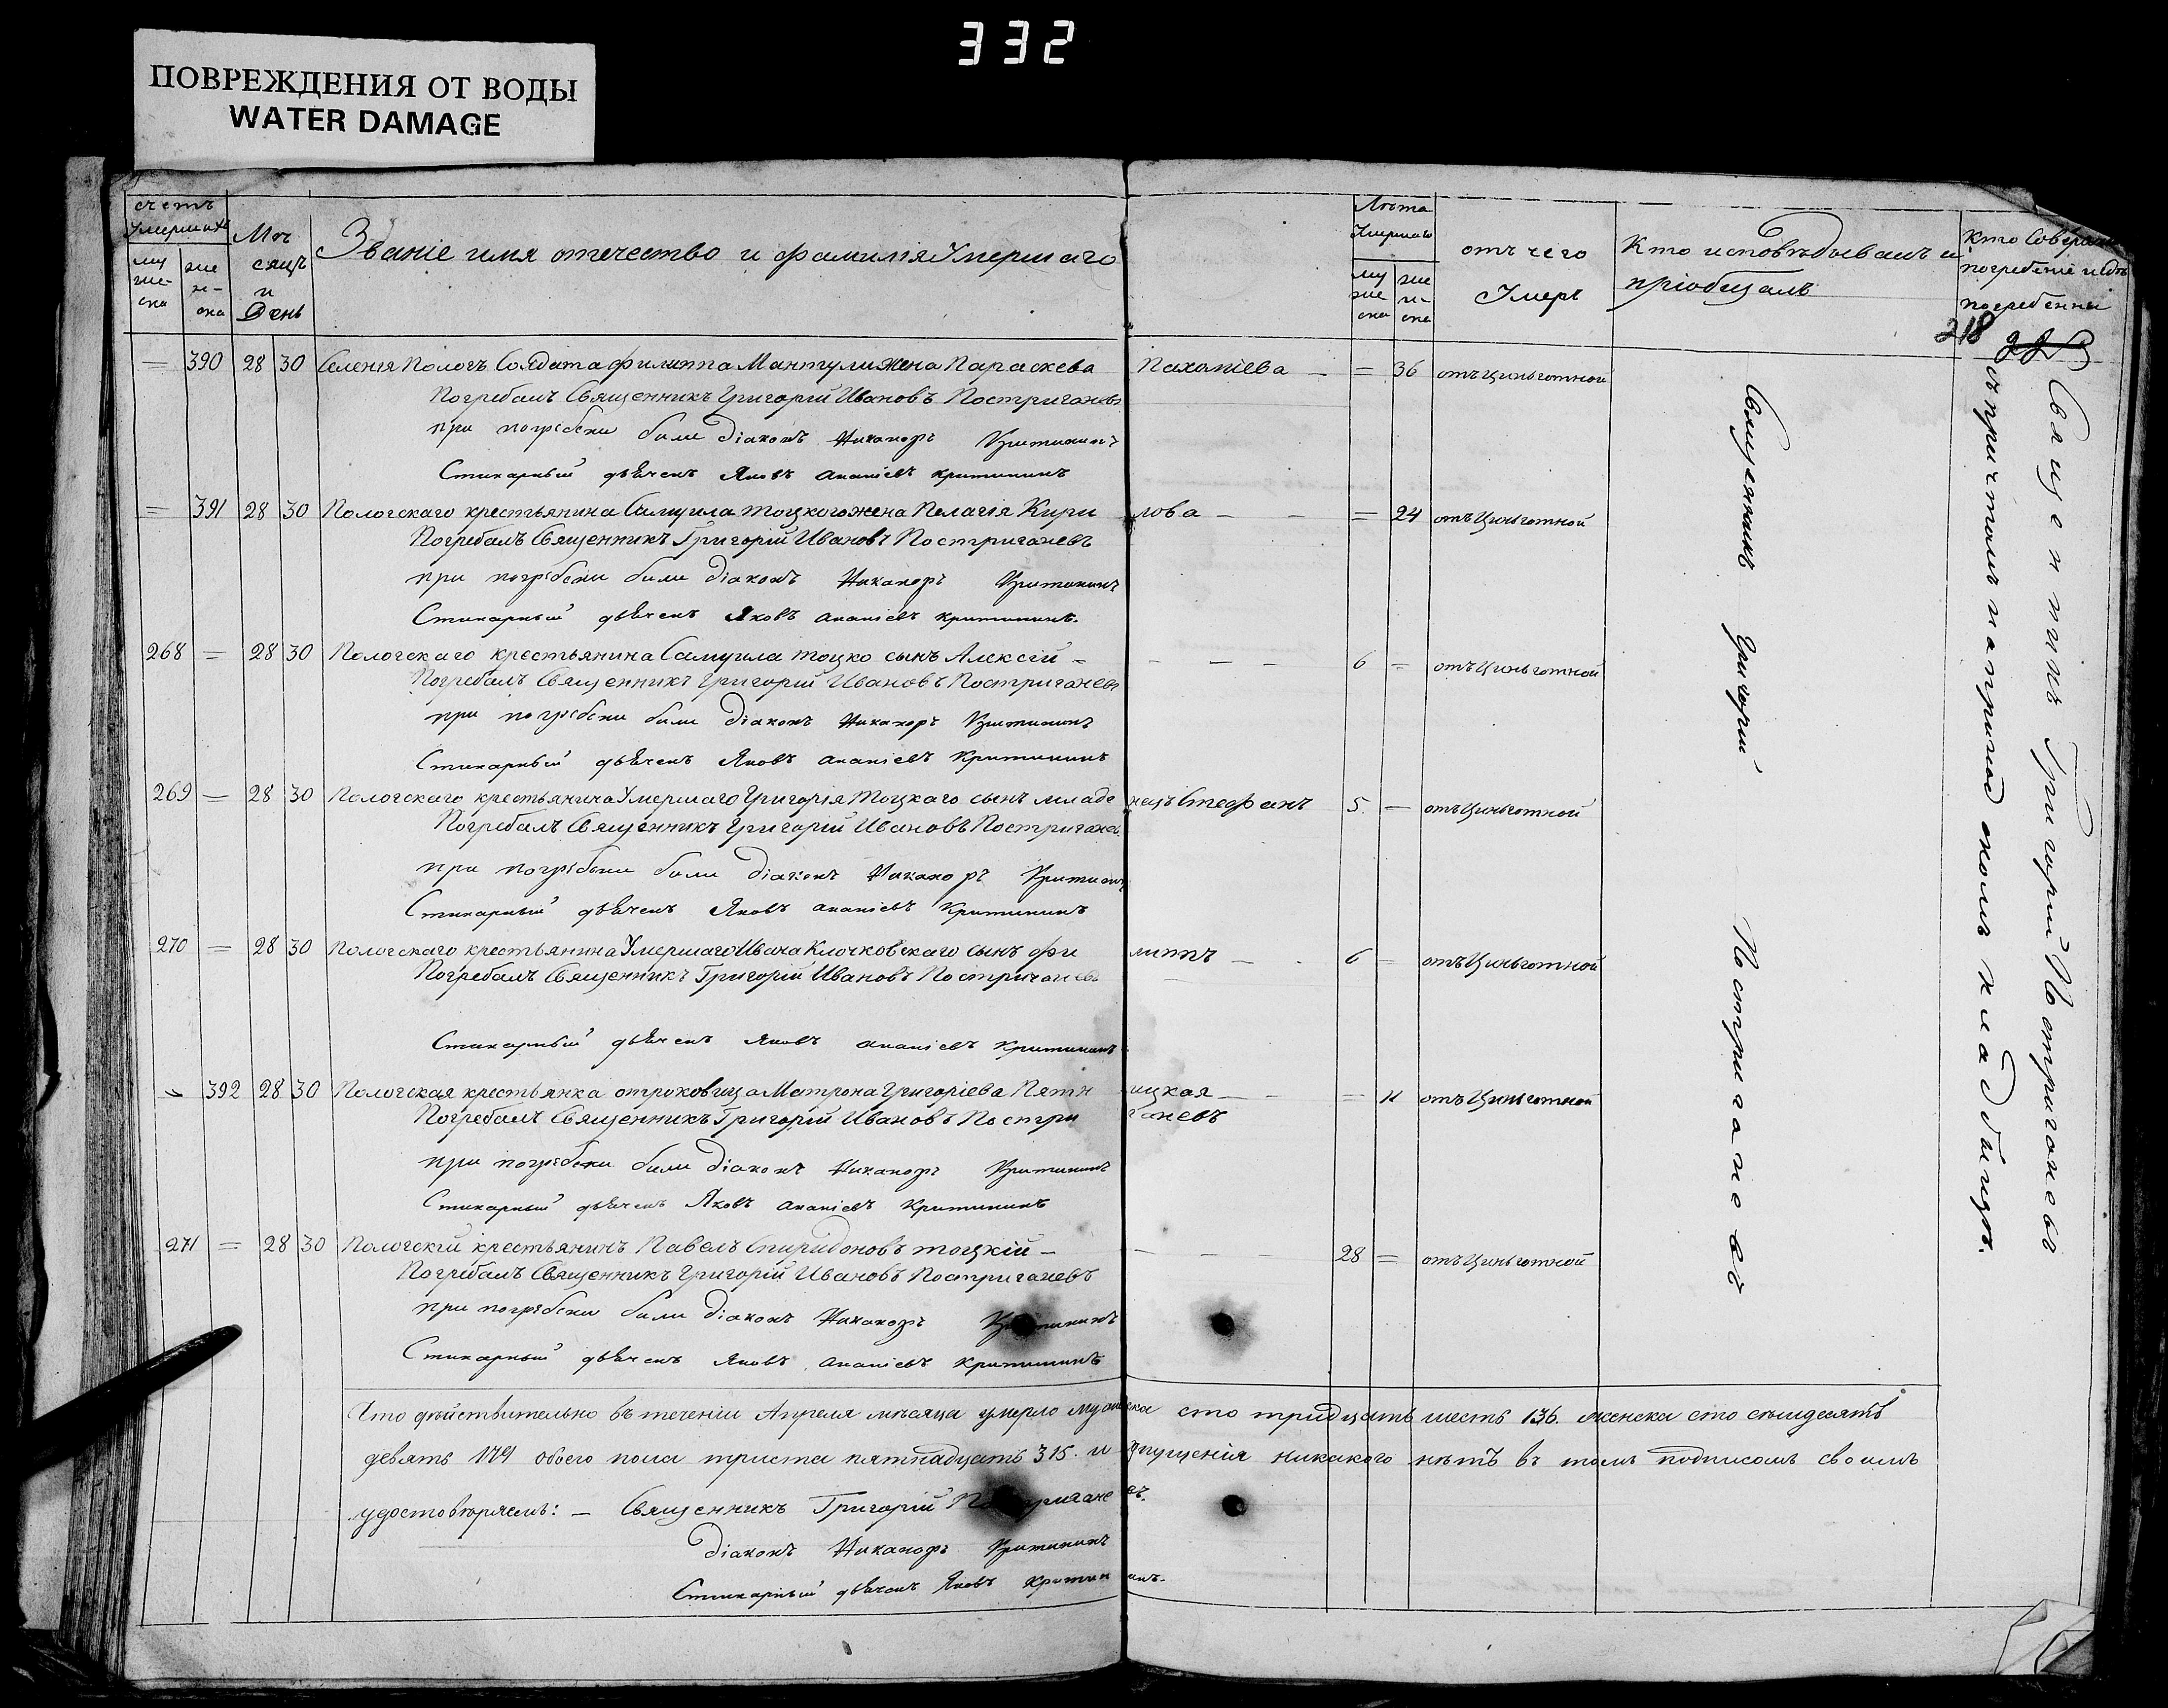 332
ПОВРЕЖДЕНИЯ ОТ ВОДЫ
WATER DAMAGE
счетъ Умершихъ Мѣсяцъ и День Званіе имя отечество и фамилія Умершаго Лѣта Умершаго отъ чего Умеръ Кто исповѣдывалъ и пріобщалъ Кто Соверш погребеніе и гдѣ погребенны
мужеска женска мужеска женска
218
= 390 28 30 Селенія Пологъ Солдата Филиппа Мантули жена Параскева Пахапіева – = 36 отъ Цынготной
Погребалъ Священникъ Григорій Ивановъ Постриганевъ
при погребени были Діаконъ Никаноръ Критининъ
Стихарный дьячекъ Яковъ Ананіевъ Критининъ
= 391 28 30 Пологскаго крестьянина Самуила Тоцкого жена Пелагія Кирилова – – = 24 отъ Цынготной
Погребалъ Священникъ Григорій Ивановъ Постриганевъ
при погребени были Діаконъ Никаноръ Критининъ
Стихарный дьячекъ Яковъ Ананіевъ Критининъ.
268 = 28 30 Пологскаго крестьянина Самуила Тоцко сынъ Алексій = – – – 6 = отъ Цынготной
Погребалъ Священникъ Григорій Ивановъ Постриганевъ
при погребени были Діаконъ Никаноръ Критининъ
Стихарный дьячекъ Яковъ Ананіевъ Критининъ
269 = 28 30 Пологскаго крестьянина Умершаго Григорія Тоцкаго сынъ младенецъ Стефанъ 5. – отъ Цынготной
Погребалъ Священникъ Григорій Ивановъ Постриганев
при погребени были Діаконъ Никаноръ Критининъ
Стихарный дьячекъ Яковъ Ананіевъ Критининъ
270 = 28 30 Пологскаго крестьянина Умершаго Ивана Клочковскаго сынъ Филиппъ – 6 – отъ Цынготной
Погребалъ Священникъ Григорій Ивановъ Постриганевъ
Стихарный дьячекъ Яковъ Ананіевъ Критининъ
392 28 30 Пологская крестьянка отроковица Матрона Григоріева Пятницкая – – = 11 отъ Цынготной
Погребалъ Священникъ Григорій Ивановъ Постриганевъ
при погребени были Діаконъ Никаноръ Критининъ
Стихарный дьячекъ Яковъ Ананіевъ Критининъ
271 = 28 30 Пологскій крестьянинъ Павелъ Спиридоновъ Тоцкій – – – – 28 = отъ Цынготной
Погребалъ Священникъ Григорій Ивановъ Постриганевъ
при погребени были Діаконъ Никаноръ Критининъ
Стихарный дьячекъ Яковъ Ананіевъ Критининъ
Священникъ Григорій Постриганевъ
Священникъ Григорій Постриганевъ
съ причтомъ на приходскомъ кладбищѣ.
Что дѣйствительно въ теченіи Апреля мѣсяца умерло мужеска сто тридцать шесть 136. женска сто семдесятъ
девять 179 обоего пола триста пятнадцать 315. и пропущенія никакого нѣтъ въ томъ подписомъ своимъ
удостовѣряемъ: – Священникъ Григорій Постриганевъ.
Діаконъ Никаноръ Критининъ
Стихарный дьячекъ Яковъ Критининъ.